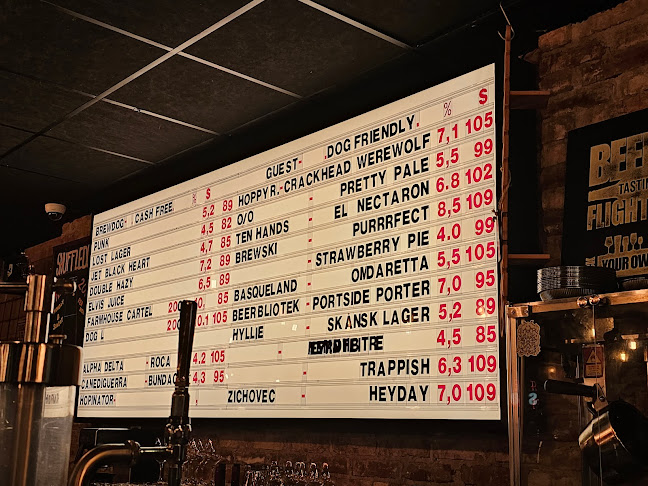 % $
GUEST- .DOG FRIENDLY.
HOPPY R.-CRACKHEAD WEREWOLF 7,1 105
O/O PRETTY PALE 5,5 99
TEN HANDS - EL NECTARON 6.8 102
BREWSKI PURRRFECT 8,5 109
- STRAWBERRY PIE 4.0 99
BASQUELAND OMDARETTA 5,5 105
BEERBLIOTEK - PORTSIDE PORTER 7,0 95
HYLLIE - SKÅNSK LAGER 5,2 89
4,5 85
- TRAPPISH 6,3 109
ZICHOVEC - HEYDAY 7,0 109
$
BREWDOG CASH FREE
PUNK 5,2 89
LOST LAGER 4,5 82
JET BLACK HEART 4,7 85
DOUBLE HAZY 7,2 89
ELVIS JUICE 6,5 89
FARMHOUSE CARTEL 85
DOG L 0.1 105
ALPHA DELTA - ROCA 4.2 105
CANEDIGUERRA - 4,3 95
HOPINATOR-
BEER
TASTING
FLIGHT
YOUR OWN